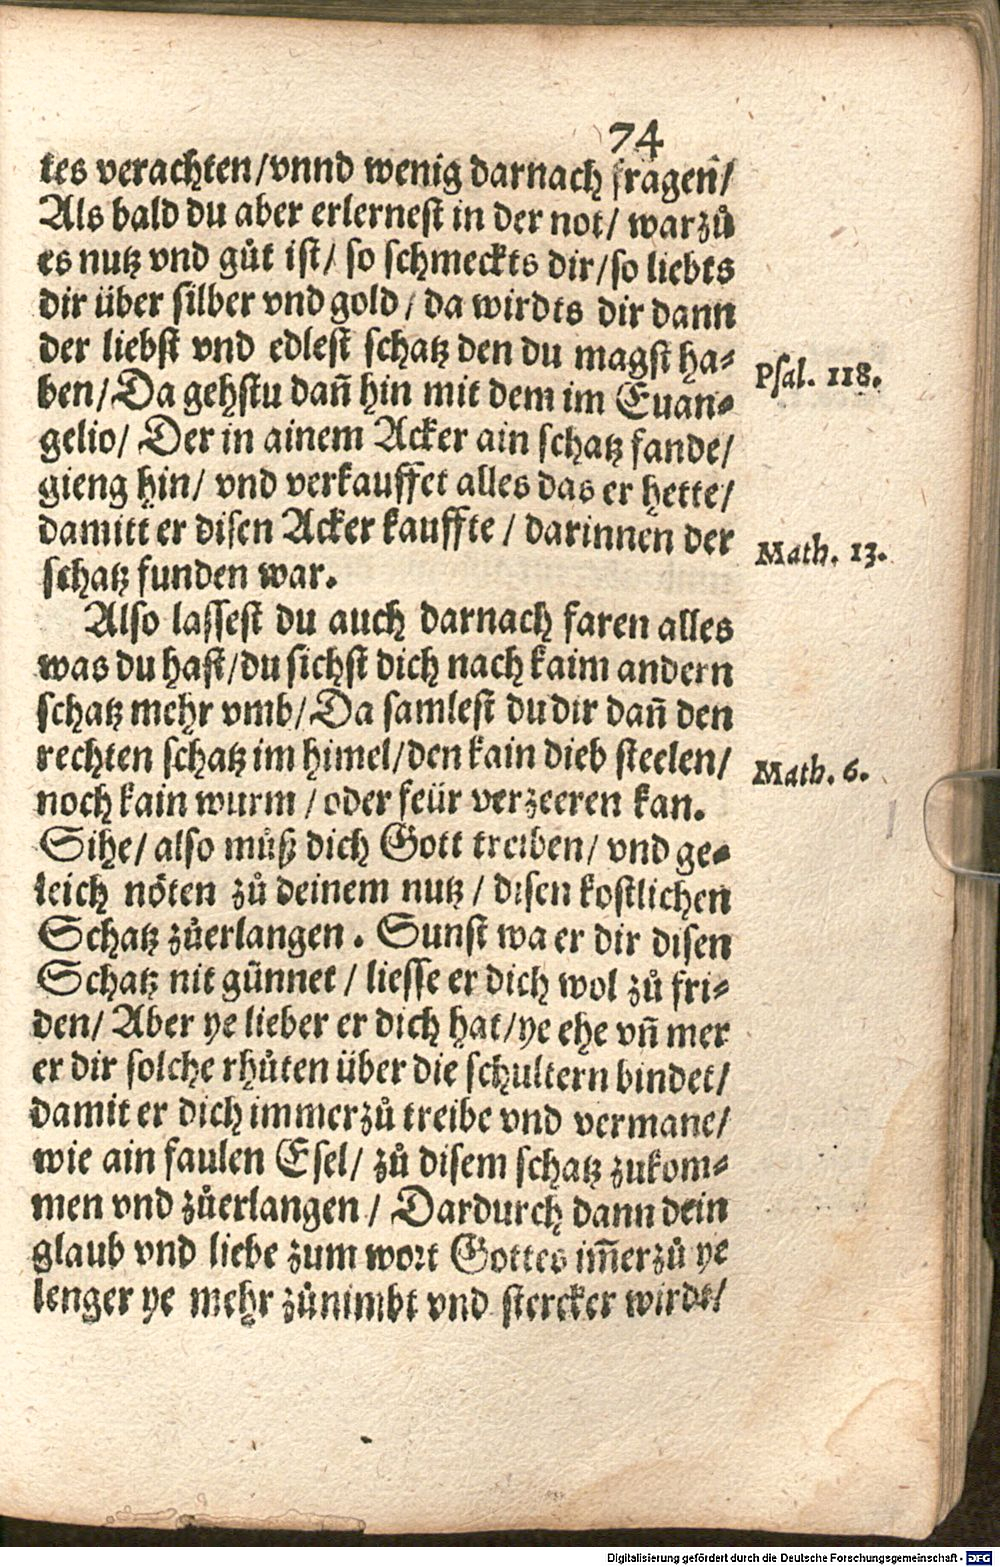 74
tes verachten/vnnd wenig darnach fragen/
Als bald du aber erlernest in der not/ warzů
es nutz vnd gůt ist/ so schmeckts dir/so liebts
dir über silber vnd gold/ da wirdts dir dann
der liebst vnd edlest schatz den du magst ha-
ben/Da gehstu dañ hin mit dem im Euan-
Psal. 118.
gelio/ Der in ainem Acker ain schatz fande/
gieng hin/ vnd verkauffet alles das er hette/
damitt er disen Acker kauffte/ darinnen der
Math. 13.
schatz funden war.
Also lassest du auch darnach faren alles
was du hast/du sichst dich nach kaim andern
schatz mehr vmb/Da samlest du dir dañ den
rechten schatz im himel/den kain dieb steelen/
Math. 6.
noch kain wurm/oder feür verzeeren kan.
Sihe/ also můß dich Gott treiben/ vnd ge-
leich nöten zů deinem nutz/ disen kostlichen
Schatz zůerlangen. Sunst wa er dir disen
Schatz nit günnet/ liesse er dich wol zů fri-
den/ Aber ye lieber er dich hat/ye ehe vñ mer
er dir solche rhůten über die schultern bindet/
damit er dich immerzů treibe vnd vermane/
wie ain faulen Esel/ zů disem schatz zukom-
men vnd zůerlangen/ Dardurch dann dein
glaub vnd liebe zum wort Gottes im̃erzů ye
lenger ye mehr zůnimbt vnd stercker wirdt/
Digitalisierung gefördert durch die Deutsche Forschungsgemeinschaft - DFG